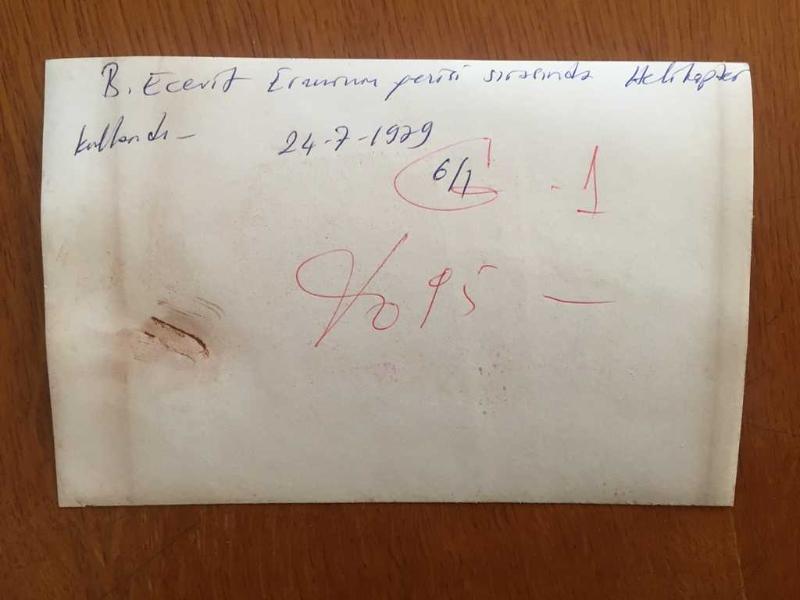 B. Ecevit Erzurum gezisi sırasında Helikopter
kullandı –
24-7-1979
6/1
G - 1
% 95 —